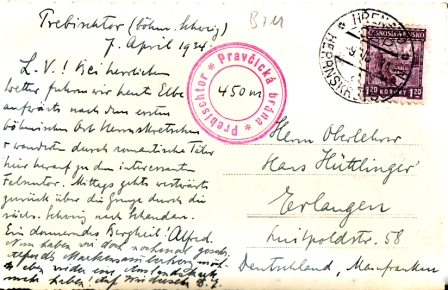 Prebischtor (böhm. Schweiz)
7. April 1934.
L. V.! Bei herrlichem
Wetter fuhren wir heute Elbe
aufwärts nach dem ersten
böhmischen Ort Herrnskretschen
u. wandern durch romantische Täler
hier herauf zu dem interessanten
Felsentor. Mittags gehts
zurück über die Grenze durch die
sächs. Schweiz nach Schandau.
Ein donnerndes Bergheil! Alfred.
Nun haben wir doch nochmal
Alfreds Markensammlung
haben! Auf Wiedersehen
Prebischtor * Pravčická brána *
450 m
ČESKOSLOVENSKO
1.20 KORUNY 1.20
HŘENSKO
HERRNSKRETSCHEN
Herrn Oberlehrer
Hans Hüttlinger
Erlangen
Luitpoldstr. 58
Deutschland, Mfranken